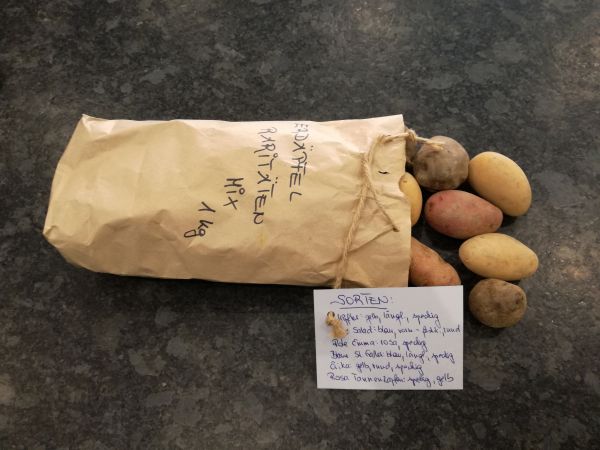 ERDÄPFEL
RARITÄTEN
MIX
1 kg
SORTEN:
gelb, längl., speckig
Salad: blau, rund
Rote Emma: rosa, speckig
Blaue St. Galler: blau, längl., speckig
Erika: gelb, rund, speckig
Rosa Tannenzapfen: speckig, gelb